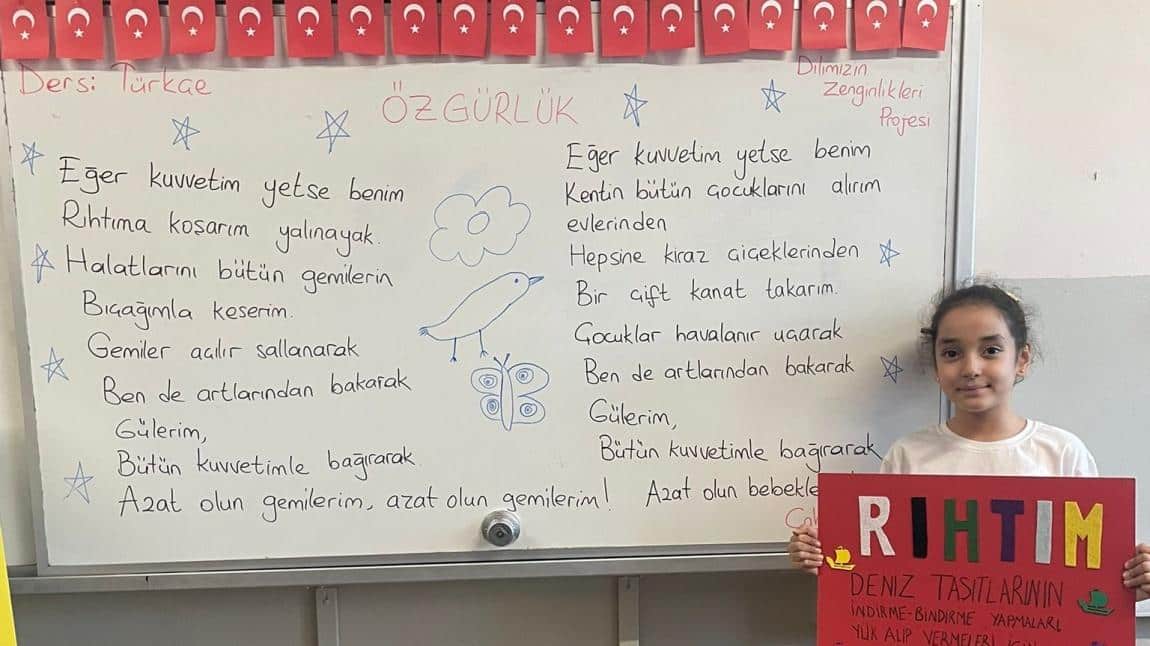 Dersi: Türkçe
ÖZGÜRLÜK
Dilimizin
Zenginlikleri
Projesi
Eğer kuvvetim yetse benim
Rıhtıma koşarım yalınayak.
Halatlarını bütün gemilerin
Bıçağımla keserim.
Gemiler açılır sallanarak
Ben de artlarından bakarak
Gülerim,
Bütün kuvvetimle bağırarak.
Azat olun gemilerim, azat olun gemilerim!
Eğer kuvvetim yetse benim
Kentin bütün çocuklarını alırım
evlerinden
Hepsine kiraz çiçeklerinden
Bir çift kanat takarım.
Çocuklar havalanır uçarak
Ben de artlarından bakarak
Gülerim,
Bütün kuvvetimle bağırarak
Azat olun bebekle
RIHTIM
DENİZ TAŞITLARININ
İNDİRME-BİNDİRME YAPMALARI,
YÜK ALIP VERMELERİ İÇİN